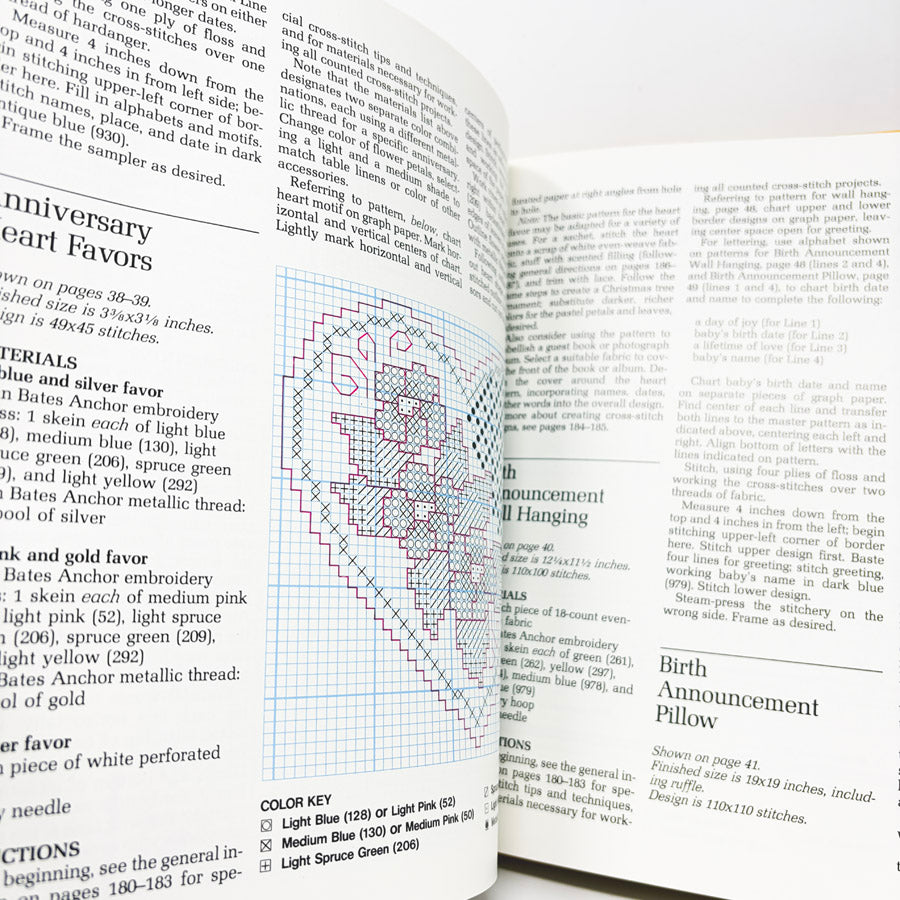 rs on either
longer dates.
ng one ply of floss and
g the cross-stitches over one
read of hardanger.
Measure 4 inches down from the
op and 4 inches in from left side; be-
in stitching upper-left corner of bor-
er here. Fill in alphabets and motifs.
titch names, place, and date in dark
ntique blue (930).
Frame the sampler as desired.
nniversary
eart Favors
own on pages 38–39.
ished size is 3⅜x3⅛ inches.
ign is 49x45 stitches.
TERIALS
blue and silver favor
n Bates Anchor embroidery
ss: 1 skein each of light blue
8), medium blue (130), light
uce green (206), spruce green
9), and light yellow (292)
Bates Anchor metallic thread:
ool of silver
nk and gold favor
Bates Anchor embroidery
s: 1 skein each of medium pink
light pink (52), light spruce
n (206), spruce green (209),
light yellow (292)
Bates Anchor metallic thread:
ol of gold
er favor
piece of white perforated
y needle
CTIONS
beginning, see the general in-
on pages 180–183 for spe-
cial cross-stitch tips and techniques,
and for materials necessary for work-
ing all counted cross-stitch projects.
Note that the materials list above
designates two separate color combi-
nations, each using a different metal-
lic thread for a specific anniversary.
Change color of flower petals, select-
ing a light and a medium shade to
match table linens or color of other
accessories.
Referring to pattern, below, chart
heart motif on graph paper. Mark hor-
izontal and vertical centers of chart.
Lightly mark horizontal and vertical
COLOR KEY
Light Blue (128) or Light Pink (52)
Medium Blue (130) or Medium Pink (50)
Light Spruce Green (206)
forated paper at right angles from hole
to hole.
Note: The basic pattern for the heart
favor may be adapted for a variety of
uses. For a sachet, stitch the heart
onto a scrap of white even-weave fab-
ric, stuff with scented filling (follow-
general directions on pages 186–
and trim with lace. Follow the
me steps to create a Christmas tree
nament; substitute darker, richer
lors for the pastel petals and leaves,
desired.
Also consider using the pattern to
bellish a guest book or photograph
um. Select a suitable fabric to cov-
he front of the book or album. De-
the cover around the heart
ern, incorporating names, dates,
ther words into the overall design.
more about creating cross-stitch
gns, see pages 184–185.
th
nouncement
ll Hanging
on page 40.
d size is 12¼x11½ inches.
is 110x100 stitches.
IALS
ch piece of 18-count even-
fabric
tes Anchor embroidery
skein each of green (261),
een (262), yellow (297),
), medium blue (978), and
e (979)
y hoop
needle
TIONS
ginning, see the general in-
on pages 180–183 for spe-
stitch tips and techniques,
erials necessary for work-
ing all counted cross-stitch projects.
Referring to pattern for wall hang-
ing, page 48, chart upper and lower
border designs on graph paper, leav-
ing center space open for greeting.
For lettering, use alphabet shown
on patterns for Birth Announcement
Wall Hanging, page 48 (lines 2 and 4),
and Birth Announcement Pillow, page
49 (lines 1 and 4), to chart birth date
and name to complete the following:
a day of joy (for Line 1)
baby's birth date (for Line 2)
a lifetime of love (for Line 3)
baby's name (for Line 4)
Chart baby's birth date and name
on separate pieces of graph paper.
Find center of each line and transfer
both lines to the master pattern as in-
dicated above, centering each left and
right. Align bottom of letters with the
lines indicated on pattern.
Stitch, using four plies of floss and
working the cross-stitches over two
threads of fabric.
Measure 4 inches down from the
top and 4 inches in from the left; begin
stitching upper-left corner of border
here. Stitch upper design first. Baste
four lines for greeting; stitch greeting,
working baby's name in dark blue
(979). Stitch lower design.
Steam-press the stitchery on the
wrong side. Frame as desired.
Birth
Announcement
Pillow
Shown on page 41.
Finished size is 19x19 inches, includ-
ing ruffle.
Design is 110x110 stitches.